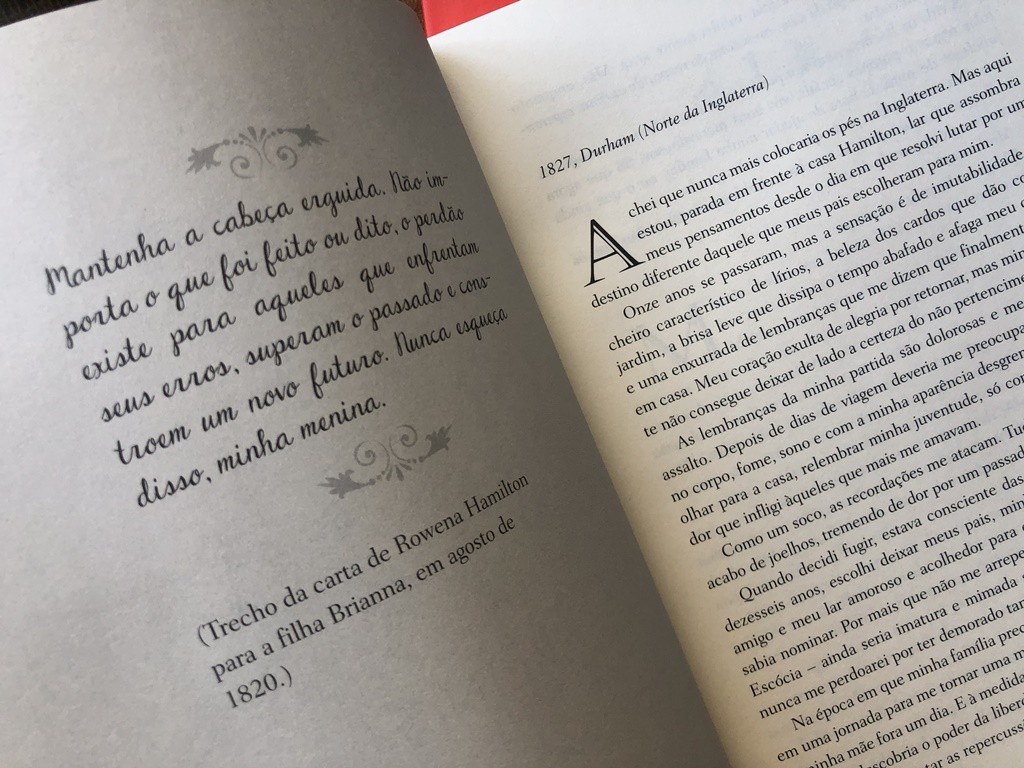 Mantenha a cabeça erguida. Não im-
porta o que foi feito ou dito, o perdão
existe para aqueles que enfrentam
seus erros, superam o passado e cons-
troem um novo futuro. Nunca esqueça
disso, minha menina.
(Trecho da carta de Rowena Hamilton
para a filha Brianna, em agosto de
1820.)
1827, Durham (Norte da Inglaterra)
Achei que nunca mais colocaria os pés na Inglaterra. Mas aqui
estou, parada em frente à casa Hamilton, lar que assombra
meus pensamentos desde o dia em que resolvi lutar por um
destino diferente daquele que meus pais escolheram para mim.
Onze anos se passaram, mas a sensação é de imutabilidade
cheiro característico de lírios, a beleza dos cardos que dão
jardim, a brisa leve que dissipa o tempo abafado e afaga meu
e uma enxurrada de lembranças que me dizem que finalmente
em casa. Meu coração exulta de alegria por retornar, mas
te não consegue deixar de lado a certeza do não
As lembranças da minha partida são dolorosas e me
assalto. Depois de dias de viagem deveria me
no corpo, fome, sono e com a minha aparência
olhar para a casa, relembrar minha juventude, só
dor que infligi àqueles que mais me amavam.
Como um soco, as recordações me atacam.
acabo de joelhos, tremendo de dor por um
Quando decidi fugir, estava consciente das
dezesseis anos, escolhi deixar meus pais,
amigo e meu lar amoroso e acolhedor para
sabia nominar. Por mais que não me
Escócia – ainda seria imatura e mimada
nunca me perdoarei por ter demorado
Na época em que minha família
em uma jornada para me tornar uma
minha mãe fora um dia. E à medida
descobria o poder da
as